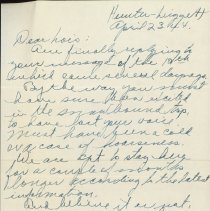 Hunter-Liggett
April 23, 44.
Dear Lois:
Am finally replying to
your message of the 10th
which came several days ago.
By the way you
have sure been
in the
to have lost your voice.
Must have been a cold
or a case of hoarseness.
We are apt to stay here
for a couple of months
longer according to the latest
information.
And believe it or not,